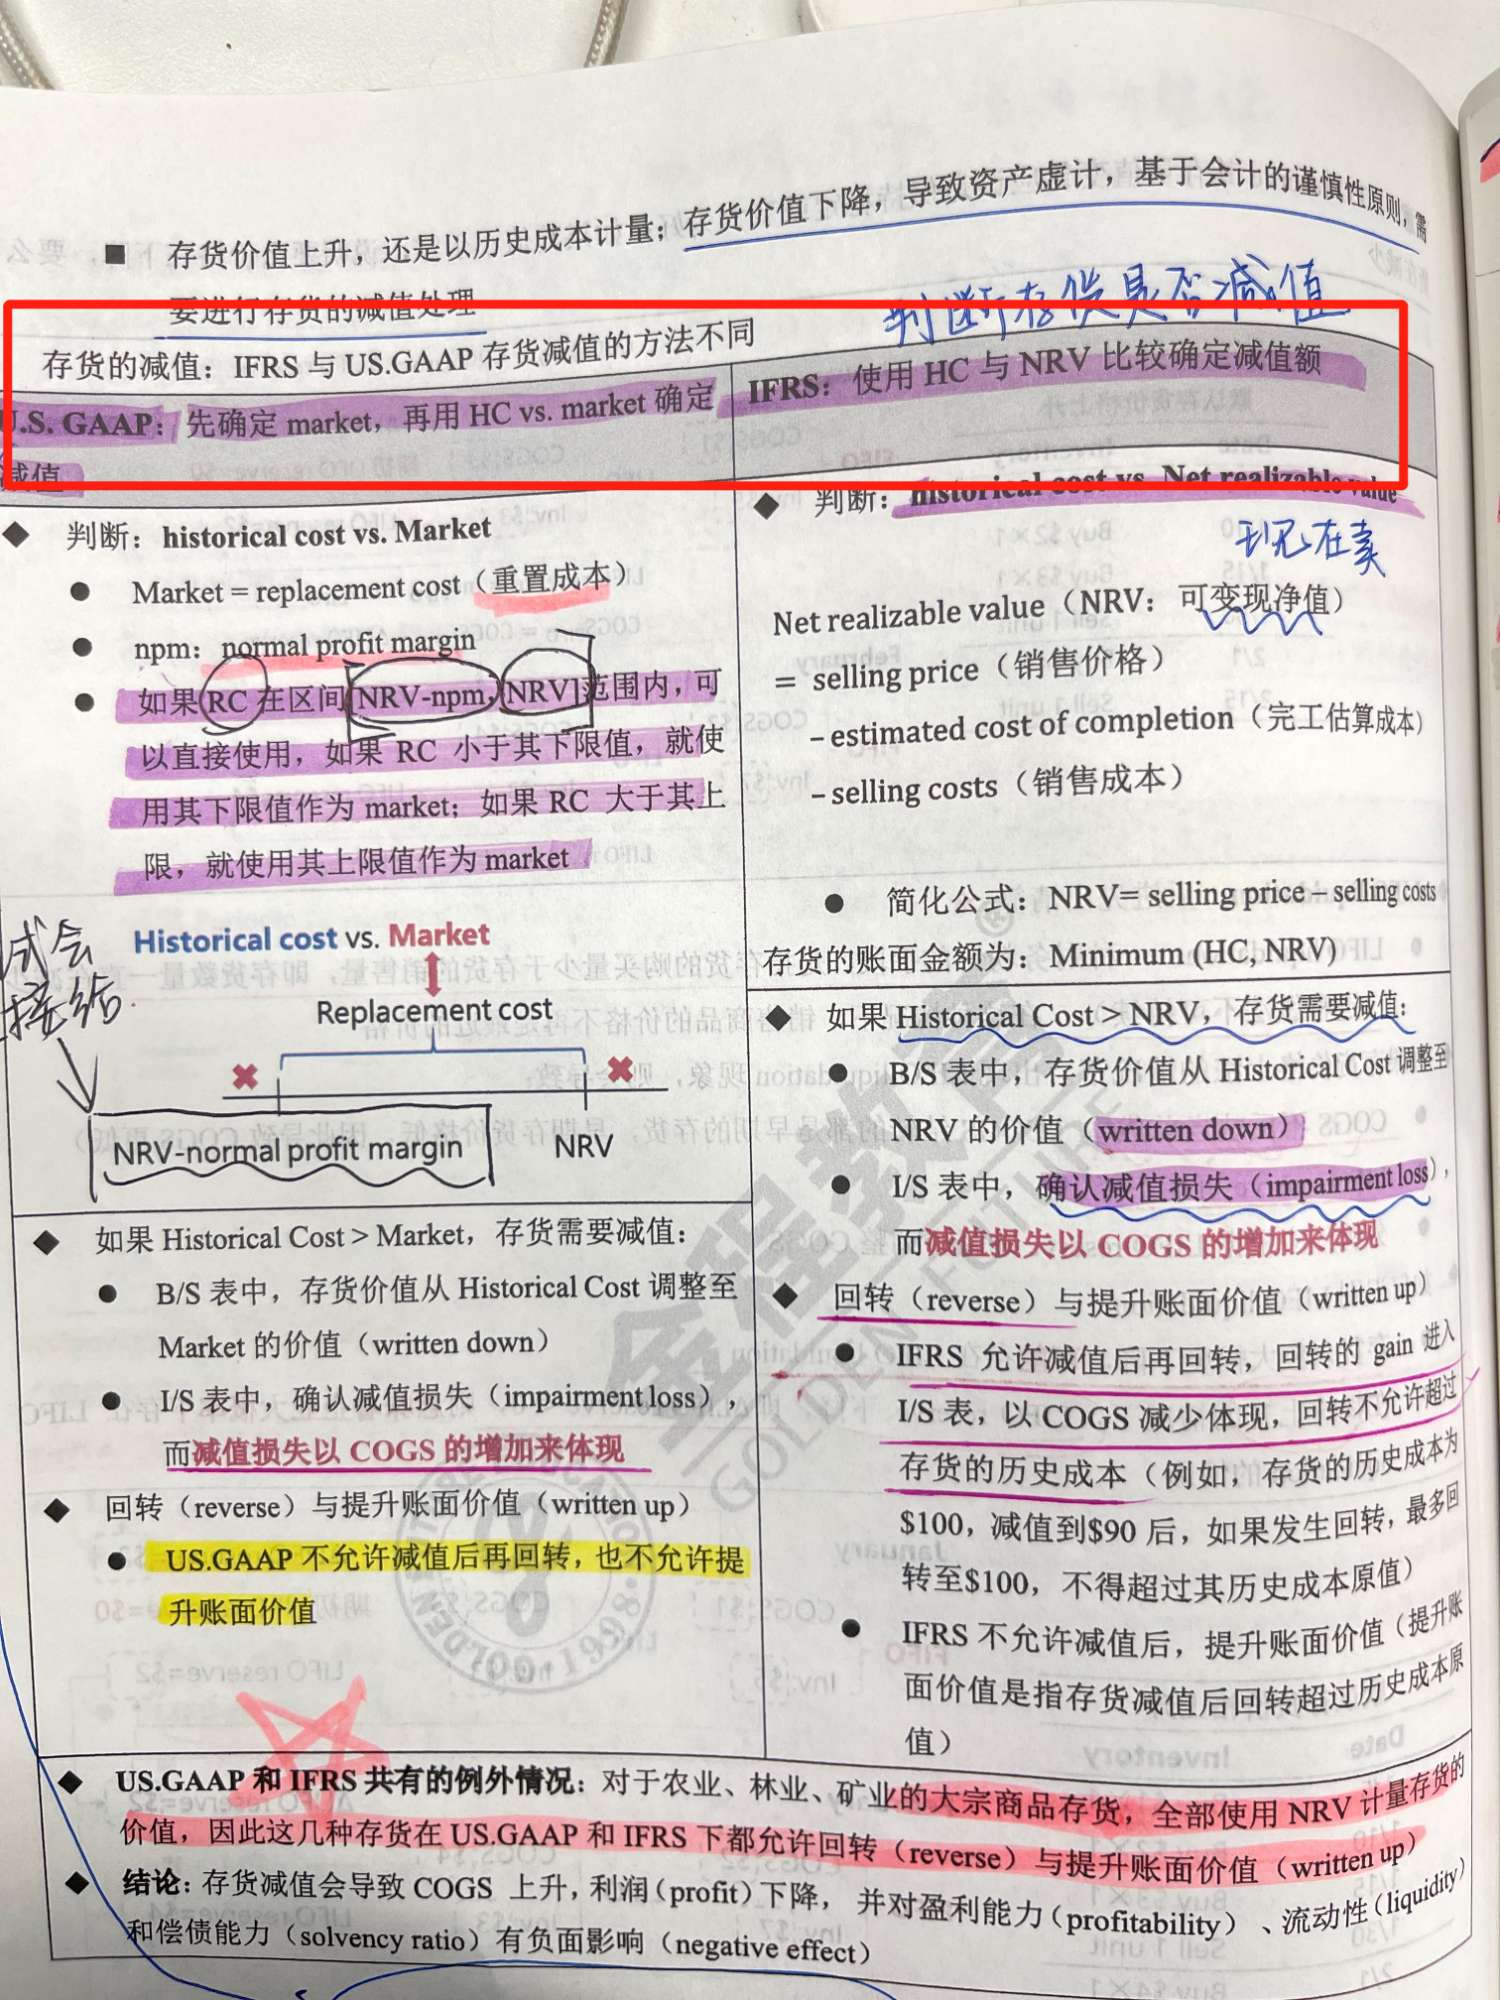 ■ 存货价值上升，还是以历史成本计量；存货价值下降，导致资产虚计，基于会计的谨慎性原则，需
要进行存货的减值处理
判断存货是否减值
存货的减值：IFRS 与 US.GAAP 存货减值的方法不同
U.S. GAAP：先确定 market，再用 HC vs. market 确定
减值
◆ 判断：historical cost vs. Market
● Market = replacement cost（重置成本）
● npm：normal profit margin
● 如果 RC 在区间[NRV-npm, NRV]范围内，可
以直接使用，如果 RC 小于其下限值，就使
用其下限值作为 market；如果 RC 大于其上
限，就使用其上限值作为 market
Historical cost vs. Market
Replacement cost
NRV-normal profit margin
NRV
◆ 如果 Historical Cost > Market，存货需要减值：
● B/S 表中，存货价值从 Historical Cost 调整至
Market 的价值（written down）
● I/S 表中，确认减值损失（impairment loss），
而减值损失以 COGS 的增加来体现
◆ 回转（reverse）与提升账面价值（written up）
● US.GAAP 不允许减值后再回转，也不允许提
升账面价值
IFRS：使用 HC 与 NRV 比较确定减值额
◆ 判断：historical cost vs. Net realizable value
现在卖
Net realizable value（NRV：可变现净值）
= selling price（销售价格）
– estimated cost of completion（完工估算成本）
– selling costs（销售成本）
● 简化公式：NRV= selling price – selling costs
存货的账面金额为：Minimum (HC, NRV)
◆ 如果 Historical Cost > NRV，存货需要减值：
● B/S 表中，存货价值从 Historical Cost 调整至
NRV 的价值（written down）
● I/S 表中，确认减值损失（impairment loss），
而减值损失以 COGS 的增加来体现
◆ 回转（reverse）与提升账面价值（written up）
● IFRS 允许减值后再回转，回转的 gain 进入
I/S 表，以 COGS 减少体现，回转不允许超过
存货的历史成本（例如，存货的历史成本为
$100，减值到$90 后，如果发生回转，最多回
转至$100，不得超过其历史成本原值）
● IFRS 不允许减值后，提升账面价值（提升账
面价值是指存货减值后回转超过历史成本原
值）
◆ US.GAAP 和 IFRS 共有的例外情况：对于农业、林业、矿业的大宗商品存货，全部使用 NRV 计量存货的
价值，因此这几种存货在 US.GAAP 和 IFRS 下都允许回转（reverse）与提升账面价值（written up）
◆ 结论：存货减值会导致 COGS 上升，利润（profit）下降，并对盈利能力（profitability）、流动性（liquidity）
和偿债能力（solvency ratio）有负面影响（negative effect）
金程教育
GOLDEN FUTURE